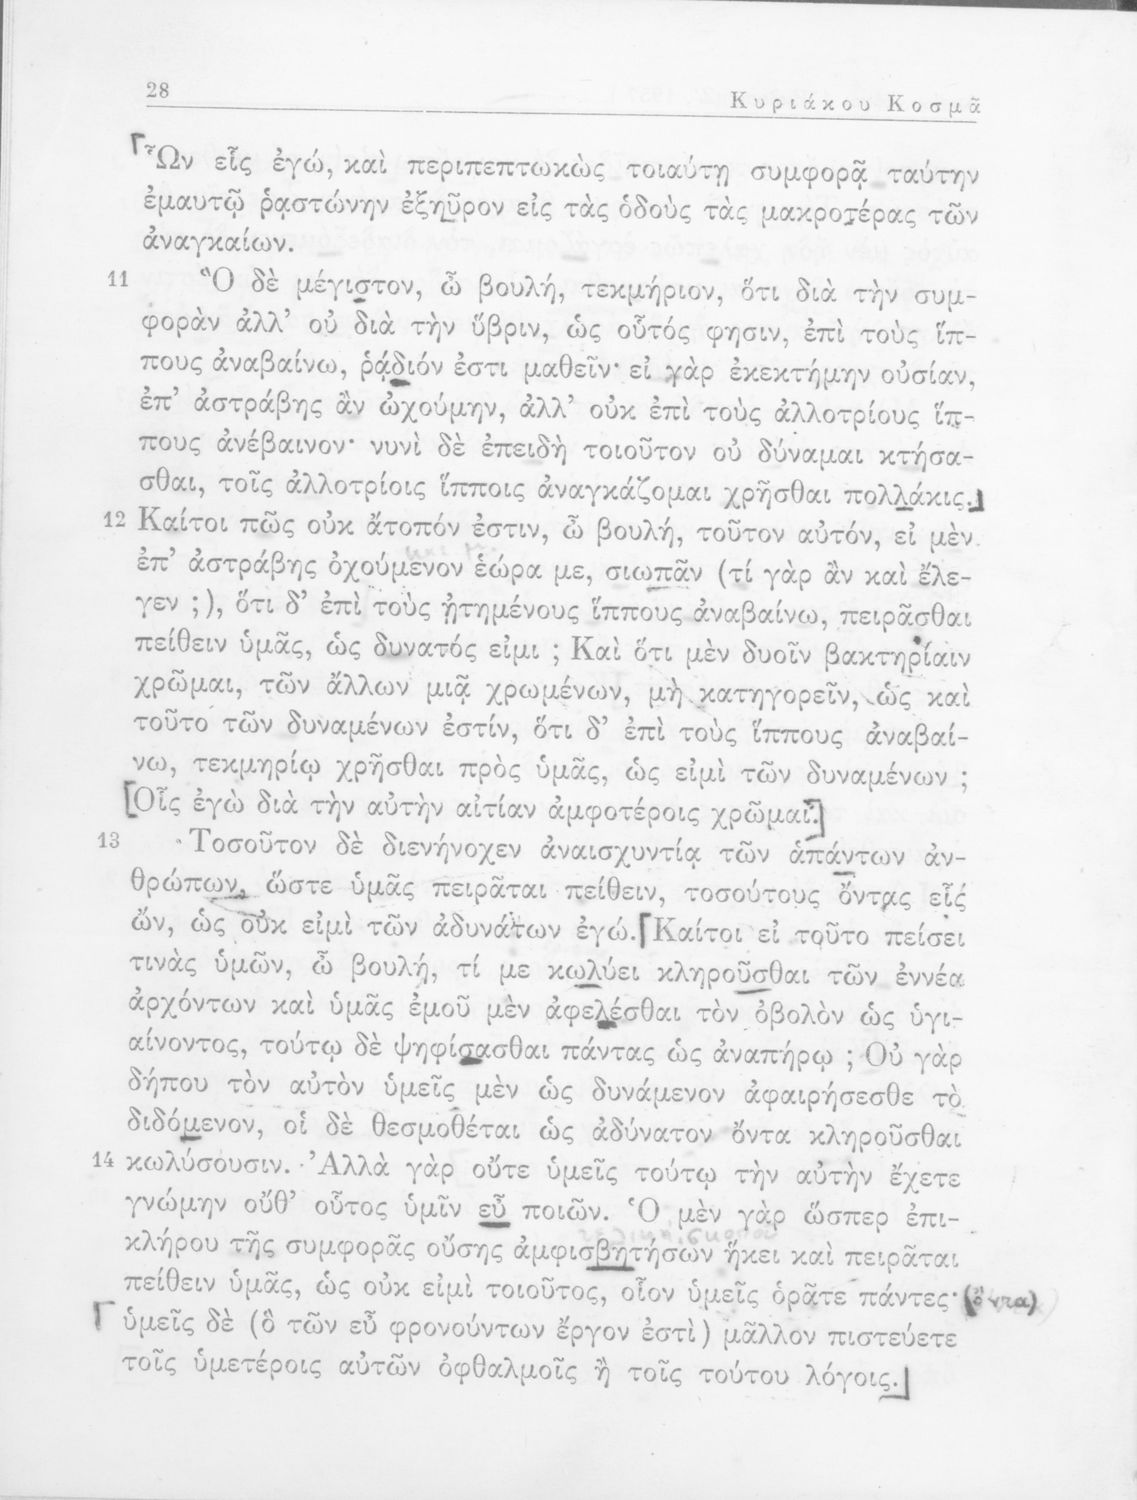 28
Κυριάκου Κοσμᾶ
Ὧν εἷς ἐγώ, καὶ περιπεπτωκὼς τοιαύτῃ συμφορᾷ ταύτην
ἐμαυτῷ ῥᾳστώνην ἐξηῦρον εἰς τὰς ὁδοὺς τὰς μακροτέρας τῶν
ἀναγκαίων.
11 Ὃ δὲ μέγιστον, ὦ βουλή, τεκμήριον, ὅτι διὰ τὴν συμ-
φορὰν ἀλλ' οὐ διὰ τὴν ὕβριν, ὡς οὗτός φησιν, ἐπὶ τοὺς ἵπ-
πους ἀναβαίνω, ῥᾴδιόν ἐστι μαθεῖν· εἰ γὰρ ἐκεκτήμην οὐσίαν,
ἐπ' ἀστράβης ἂν ὠχούμην, ἀλλ' οὐκ ἐπὶ τοὺς ἀλλοτρίους ἵπ-
πους ἀνέβαινον· νυνὶ δὲ ἐπειδὴ τοιοῦτον οὐ δύναμαι κτήσα-
σθαι, τοῖς ἀλλοτρίοις ἵπποις ἀναγκάζομαι χρῆσθαι πολλάκις.
12 Καίτοι πῶς οὐκ ἄτοπόν ἐστιν, ὦ βουλή, τοῦτον αὐτόν, εἰ μὲν
ἐπ' ἀστράβης ὀχούμενον ἑώρα με, σιωπᾶν (τί γὰρ ἂν καὶ ἔλε-
γεν ;), ὅτι δ' ἐπὶ τοὺς ᾐτημένους ἵππους ἀναβαίνω, πειρᾶσθαι
πείθειν ὑμᾶς, ὡς δυνατός εἰμι ; Καὶ ὅτι μὲν δυοῖν βακτηρίαιν
χρῶμαι, τῶν ἄλλων μιᾷ χρωμένων, μὴ κατηγορεῖν, ὡς καὶ
τοῦτο τῶν δυναμένων ἐστίν, ὅτι δ' ἐπὶ τοὺς ἵππους ἀναβαί-
νω, τεκμηρίῳ χρῆσθαι πρὸς ὑμᾶς, ὡς εἰμὶ τῶν δυναμένων ;
[Οἷς ἐγὼ διὰ τὴν αὐτὴν αἰτίαν ἀμφοτέροις χρῶμαι.]
13 Τοσοῦτον δὲ διενήνοχεν ἀναισχυντίᾳ τῶν ἁπάντων ἀν-
θρώπων, ὥστε ὑμᾶς πειρᾶται πείθειν, τοσούτους ὄντας εἷς
ὤν, ὡς οὐκ εἰμὶ τῶν ἀδυνάτων ἐγώ. Καίτοι εἰ τοῦτο πείσει
τινὰς ὑμῶν, ὦ βουλή, τί με κωλύει κληροῦσθαι τῶν ἐννέα
ἀρχόντων καὶ ὑμᾶς ἐμοῦ μὲν ἀφελέσθαι τὸν ὀβολὸν ὡς ὑγι-
αίνοντος, τούτῳ δὲ ψηφίσασθαι πάντας ὡς ἀναπήρῳ ; Οὐ γὰρ
δήπου τὸν αὐτὸν ὑμεῖς μὲν ὡς δυνάμενον ἀφαιρήσεσθε τὸ
διδόμενον, οἱ δὲ θεσμοθέται ὡς ἀδύνατον ὄντα κληροῦσθαι
14 κωλύσουσιν. Ἀλλὰ γὰρ οὔτε ὑμεῖς τούτῳ τὴν αὐτὴν ἔχετε
γνώμην οὔθ' οὗτος ὑμῖν εὖ ποιῶν. Ὁ μὲν γὰρ ὥσπερ ἐπι-
κλήρου τῆς συμφορᾶς οὔσης ἀμφισβητήσων ἥκει καὶ πειρᾶται
πείθειν ὑμᾶς, ὡς οὐκ εἰμὶ τοιοῦτος, οἷον ὑμεῖς ὁρᾶτε πάντες· (ὄντα)
ὑμεῖς δὲ (ὃ τῶν εὖ φρονούντων ἔργον ἐστὶ) μᾶλλον πιστεύετε
τοῖς ὑμετέροις αὐτῶν ὀφθαλμοῖς ἢ τοῖς τούτου λόγοις.